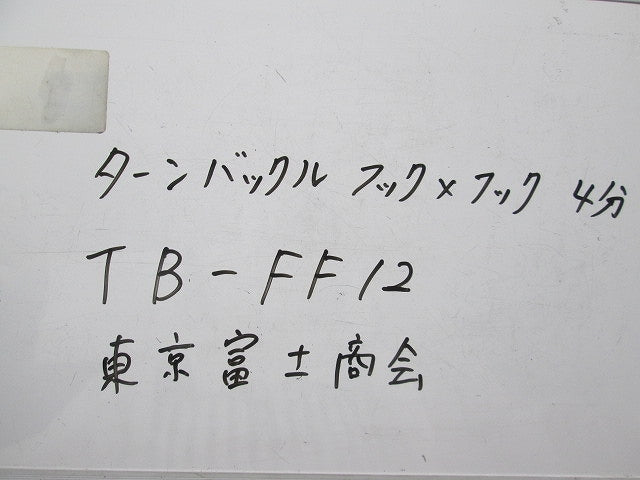 ターンバックル フック×フック 4分
TB-FF12
東京富士商会